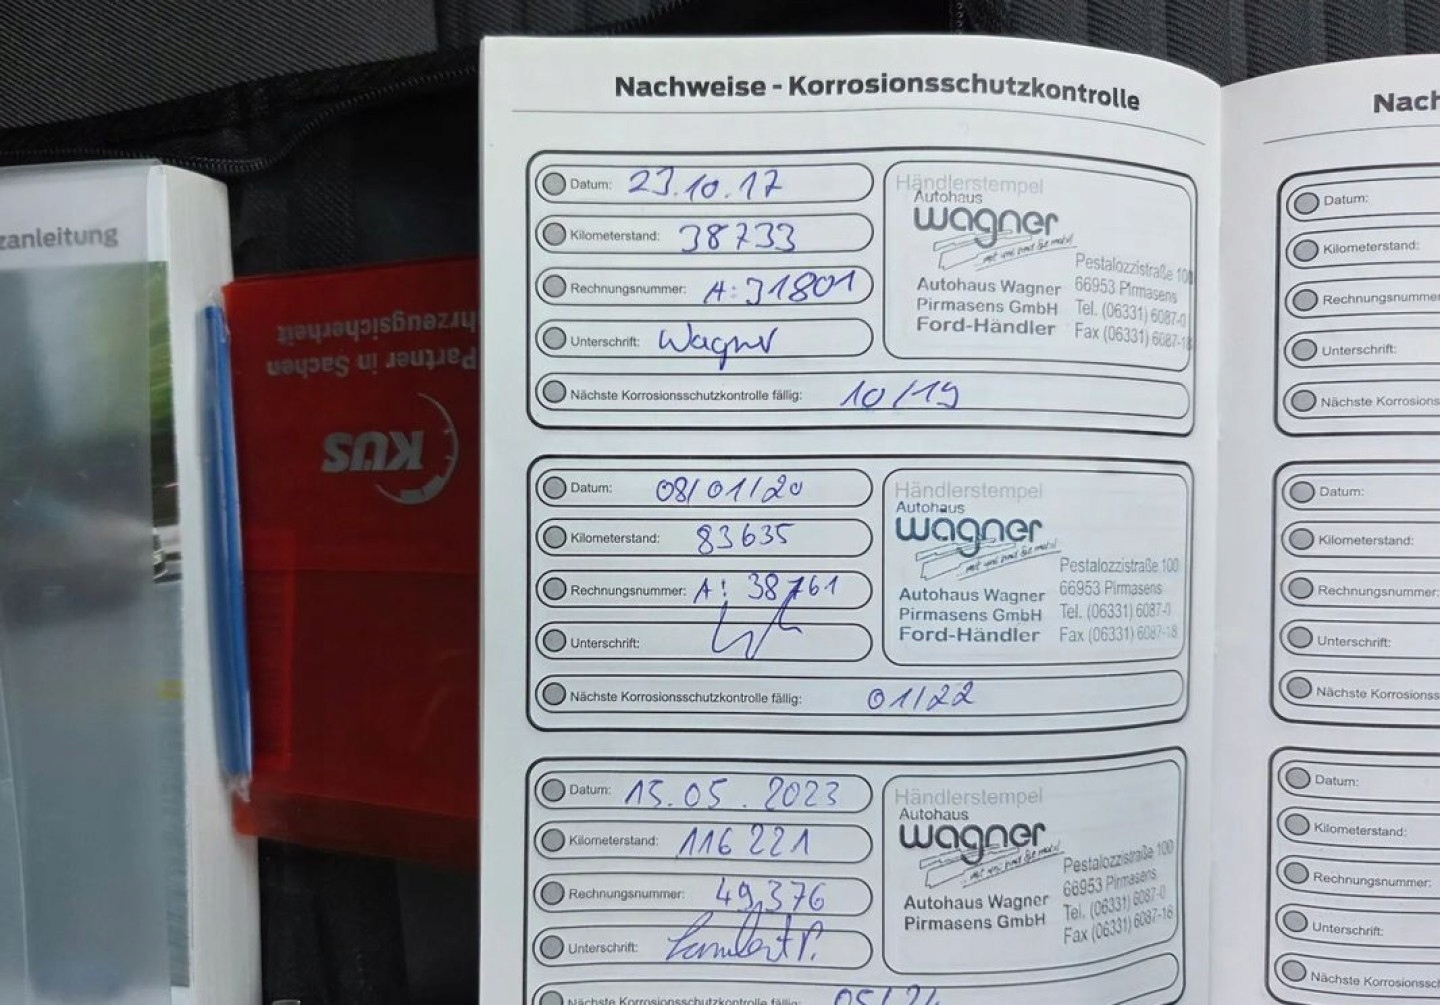 Nachweise - Korrosionsschutzkontrolle
Datum: 23.10.17
Kilometerstand: 38733
Rechnungsnummer: A: 31801
Unterschrift: Wagner
Nächste Korrosionsschutzkontrolle fällig: 10/19
Händlerstempel
Autohaus
wagner
Autohaus Wagner
Pirmasens GmbH
Ford-Händler
Pestalozzistraße 100
66953 Pirmasens
Tel. (06331) 6087-0
Fax (06331) 6087-18
Datum: 08/01/20
Kilometerstand: 83635
Rechnungsnummer: A: 38761
Unterschrift:
Nächste Korrosionsschutzkontrolle fällig: 01/22
Händlerstempel
Autohaus
wagner
... mit uns sind Sie mobil
Autohaus Wagner
Pirmasens GmbH
Ford-Händler
Pestalozzistraße 100
66953 Pirmasens
Tel. (06331) 6087-0
Fax (06331) 6087-18
Datum: 15.05.2023
Kilometerstand: 116221
Rechnungsnummer: 49376
Unterschrift:
Nächste Korrosionsschutzkontrolle fällig: 05/24
Händlerstempel
Autohaus
wagner
Autohaus Wagner
Pirmasens GmbH
Pestalozzistraße 100
66953 Pirmasens
Tel. (06331) 6087-0
Fax (06331) 6087-18
Nach
Datum:
Kilometerstand:
Rechnungsnummer
Unterschrift:
Nächste Korrosions
Datum:
Kilometerstand:
Rechnungsnummer:
Unterschrift:
Nächste Korrosionss
Datum:
Kilometerstand:
Rechnungsnummer:
Unterschrift:
Nächste Korrosionssc
zanleitung
Partner in Sachen
hrzeugsicherheit
KÜS